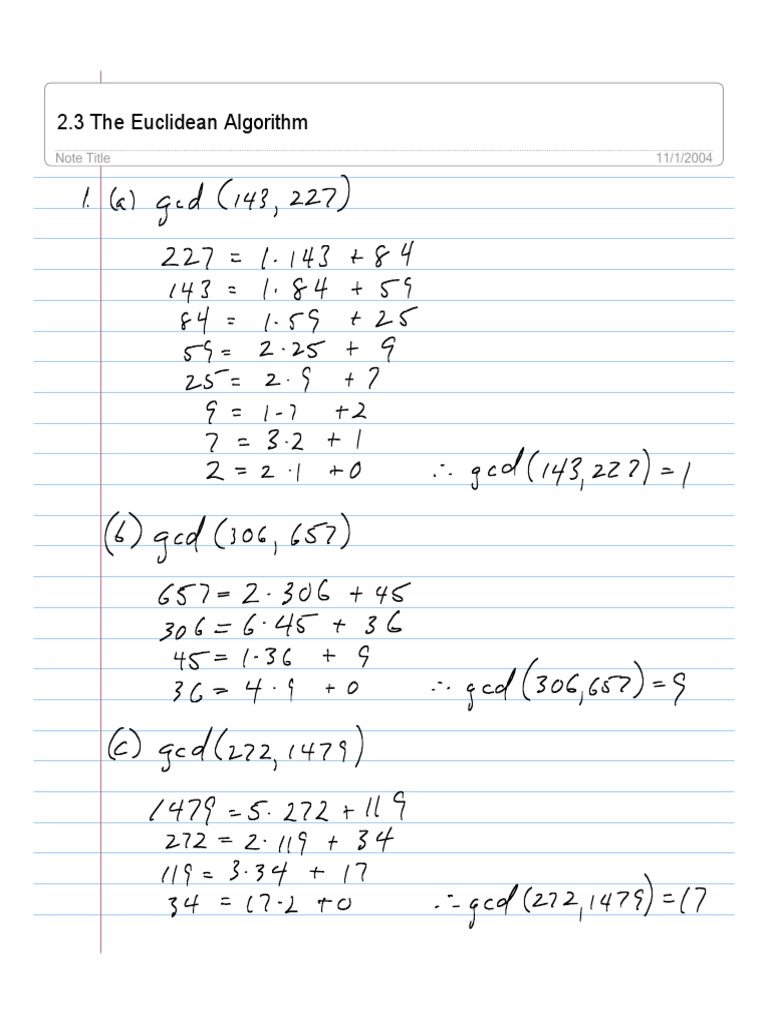 2.3 The Euclidean Algorithm
Note Title 11/1/2004
1. (a) gcd (143, 227)
227 = 1·143 + 84
143 = 1·84 + 59
84 = 1·59 + 25
59 = 2·25 + 9
25 = 2·9 + 7
9 = 1·7 + 2
7 = 3·2 + 1
2 = 2·1 + 0 ∴ gcd(143, 227) = 1
(b) gcd (306, 657)
657 = 2·306 + 45
306 = 6·45 + 36
45 = 1·36 + 9
36 = 4·9 + 0 ∴ gcd(306, 657) = 9
(c) gcd(272, 1479)
1479 = 5·272 + 119
272 = 2·119 + 34
119 = 3·34 + 17
34 = 17·2 + 0 ∴ gcd(272, 1479) = 17